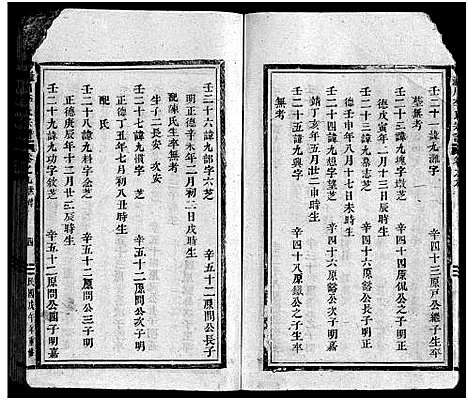 壬二十一諱九灉字　辛四十三原戸公繼子生卒
塟無考
壬二十三諱九塊字墩芝　辛四十四原侃公之子明正
德戊寅年二月十三日辰時生
壬二十四諱九墓志芝　辛四十六原公長子明正
德壬申年八月十七日未時生
壬二十四諱九烜字望芝　辛四十六原公次子明嘉
靖丁亥年五月廿二日申時生
壬二十五諱九興字　辛四十八原鎮公之子生卒
無考
壬二十六諱九部字六芝　辛五十二原問公長子
明正德辛未年二月初三日戌時生
配陳氏生卒無考
生子二長　次安
壬二十七諱九慣字　芝　辛五十二原問公次子明
正德丁丑年七月初八丑時生
配　氏
壬二十八諱九科字念芝　辛五十二原問公三子明
正德庚辰年十二月廿二辰時生
壬二十九諱九功字敘芝　辛五十二原問公四子明嘉
四
民國戊午年重修